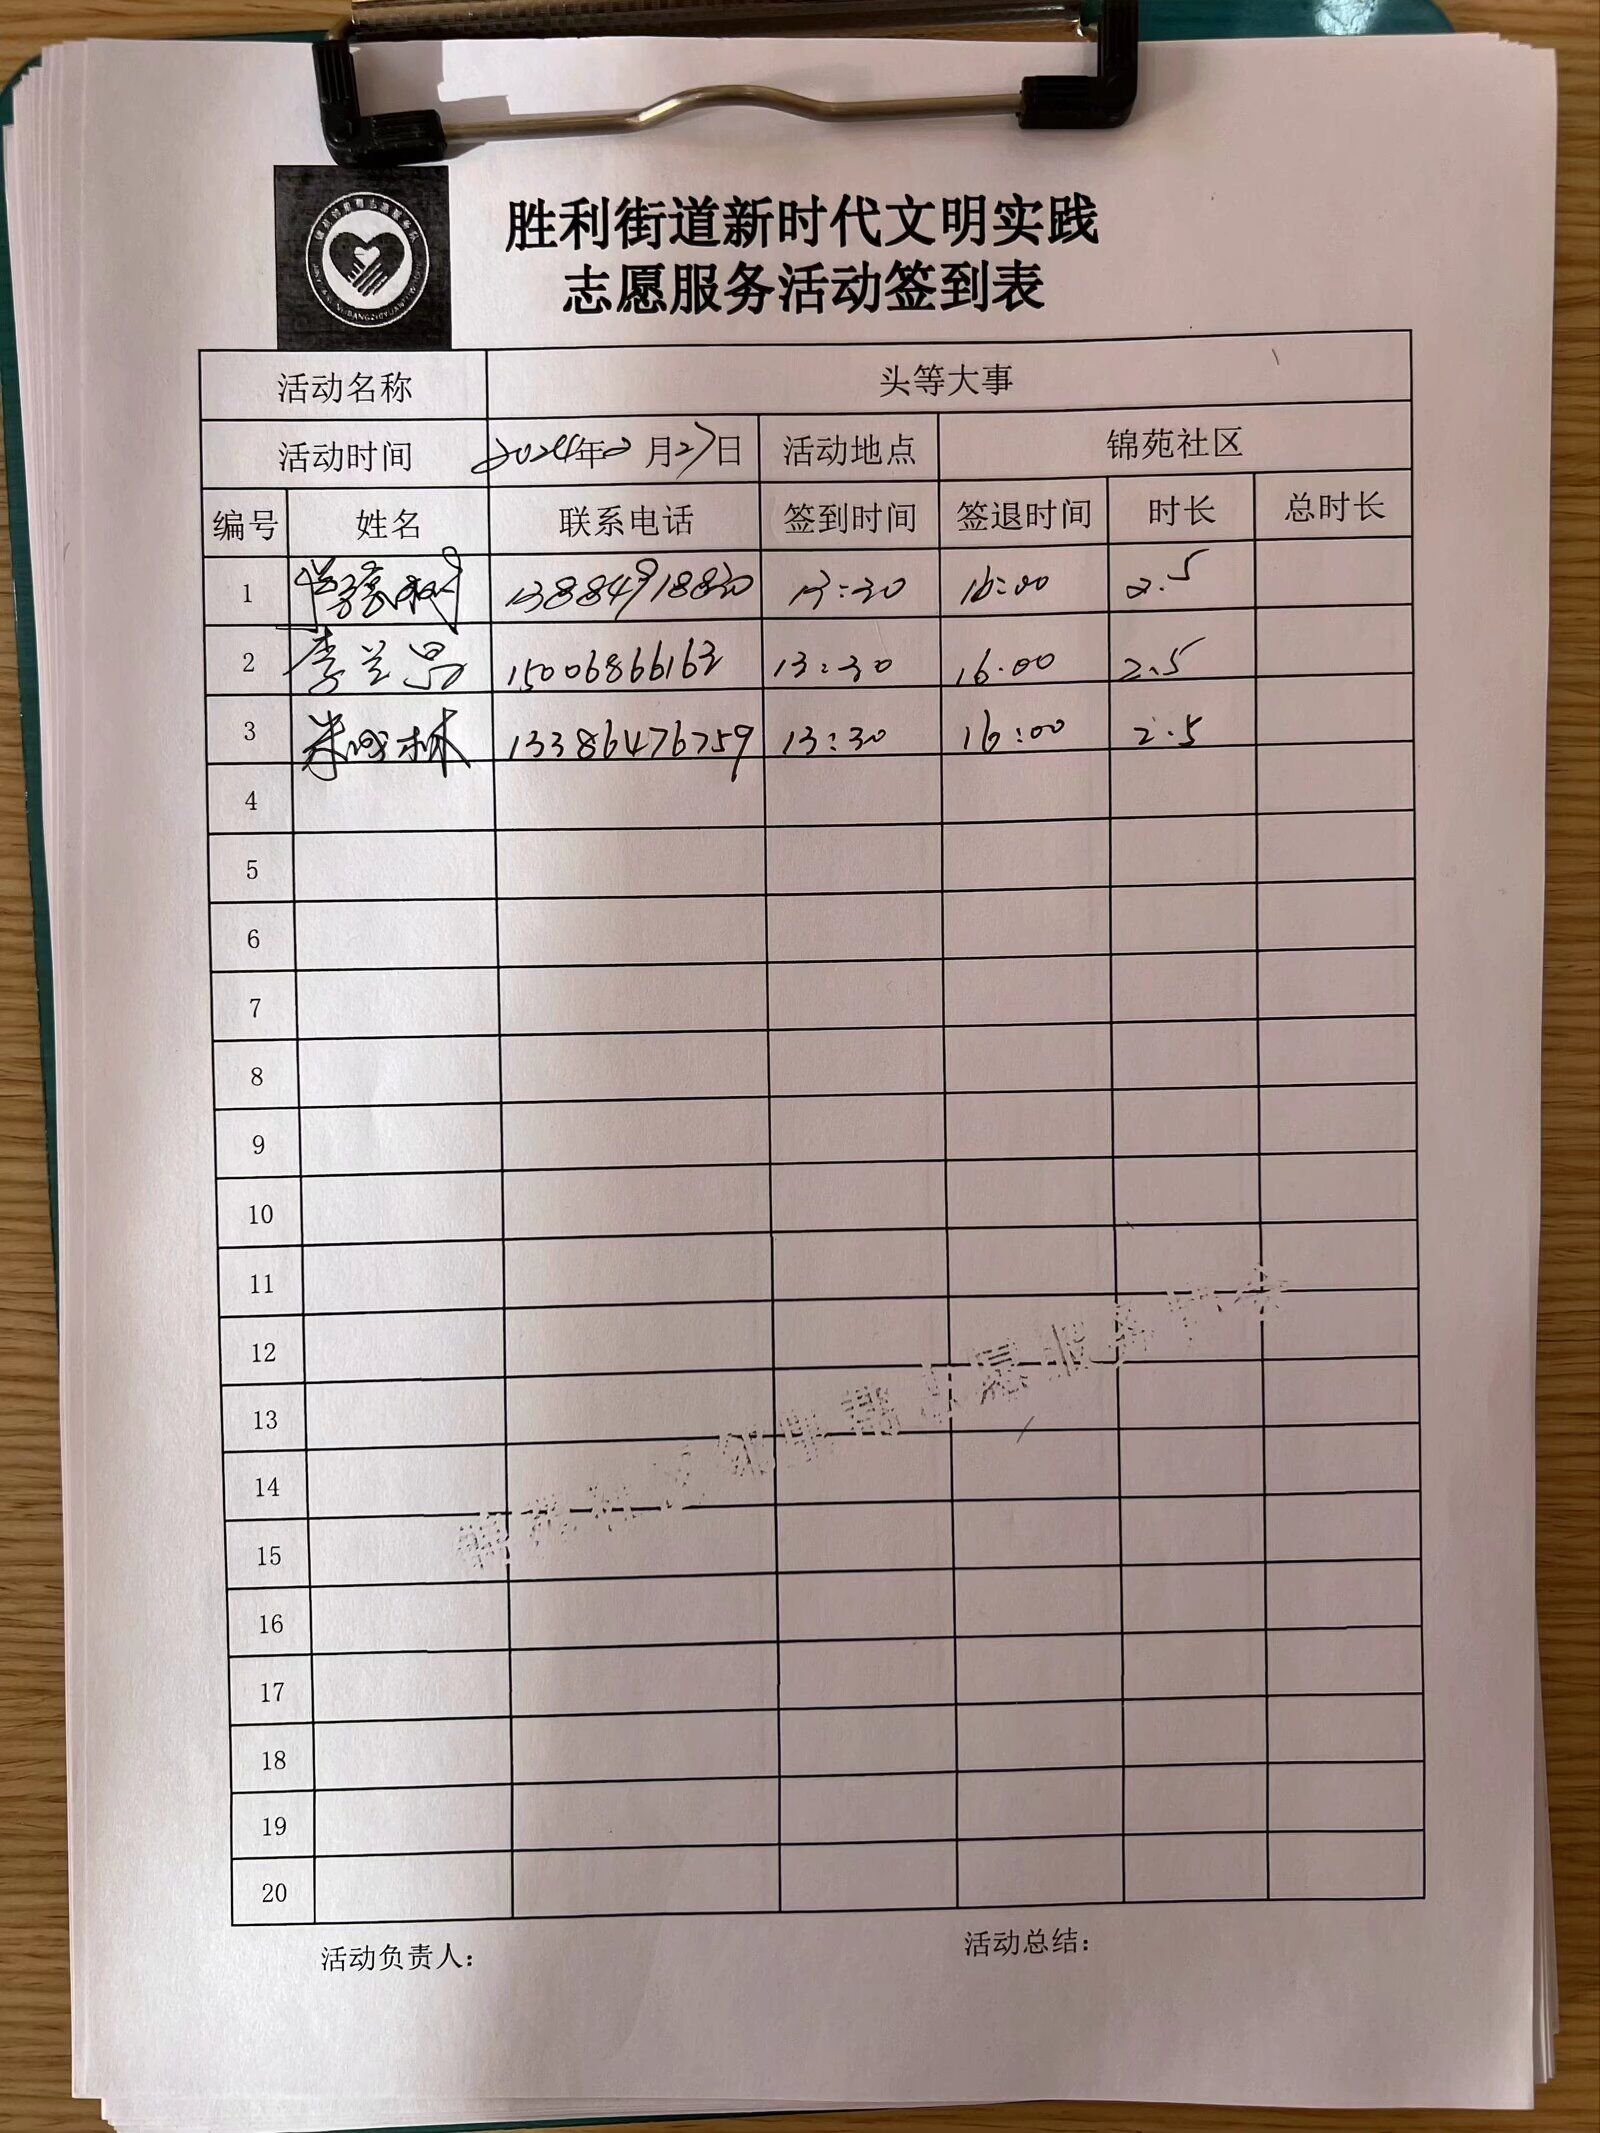 胜利街道新时代文明实践
志愿服务活动签到表
活动名称 头等大事
活动时间 2024年2月27日 活动地点 锦苑社区
编号 姓名 联系电话 签到时间 签退时间 时长 总时长
1 13884918830 13:30 16:00 2.5
2 李兰昌 15006866163 13:30 16:00 2.5
3 朱成林 13386476759 13:30 16:00 2.5
4
5
6
7
8
9
10
11
12
13
14
15
16
17
18
19
20
锦苑社区邻里帮志愿服务协会
活动负责人: 活动总结: